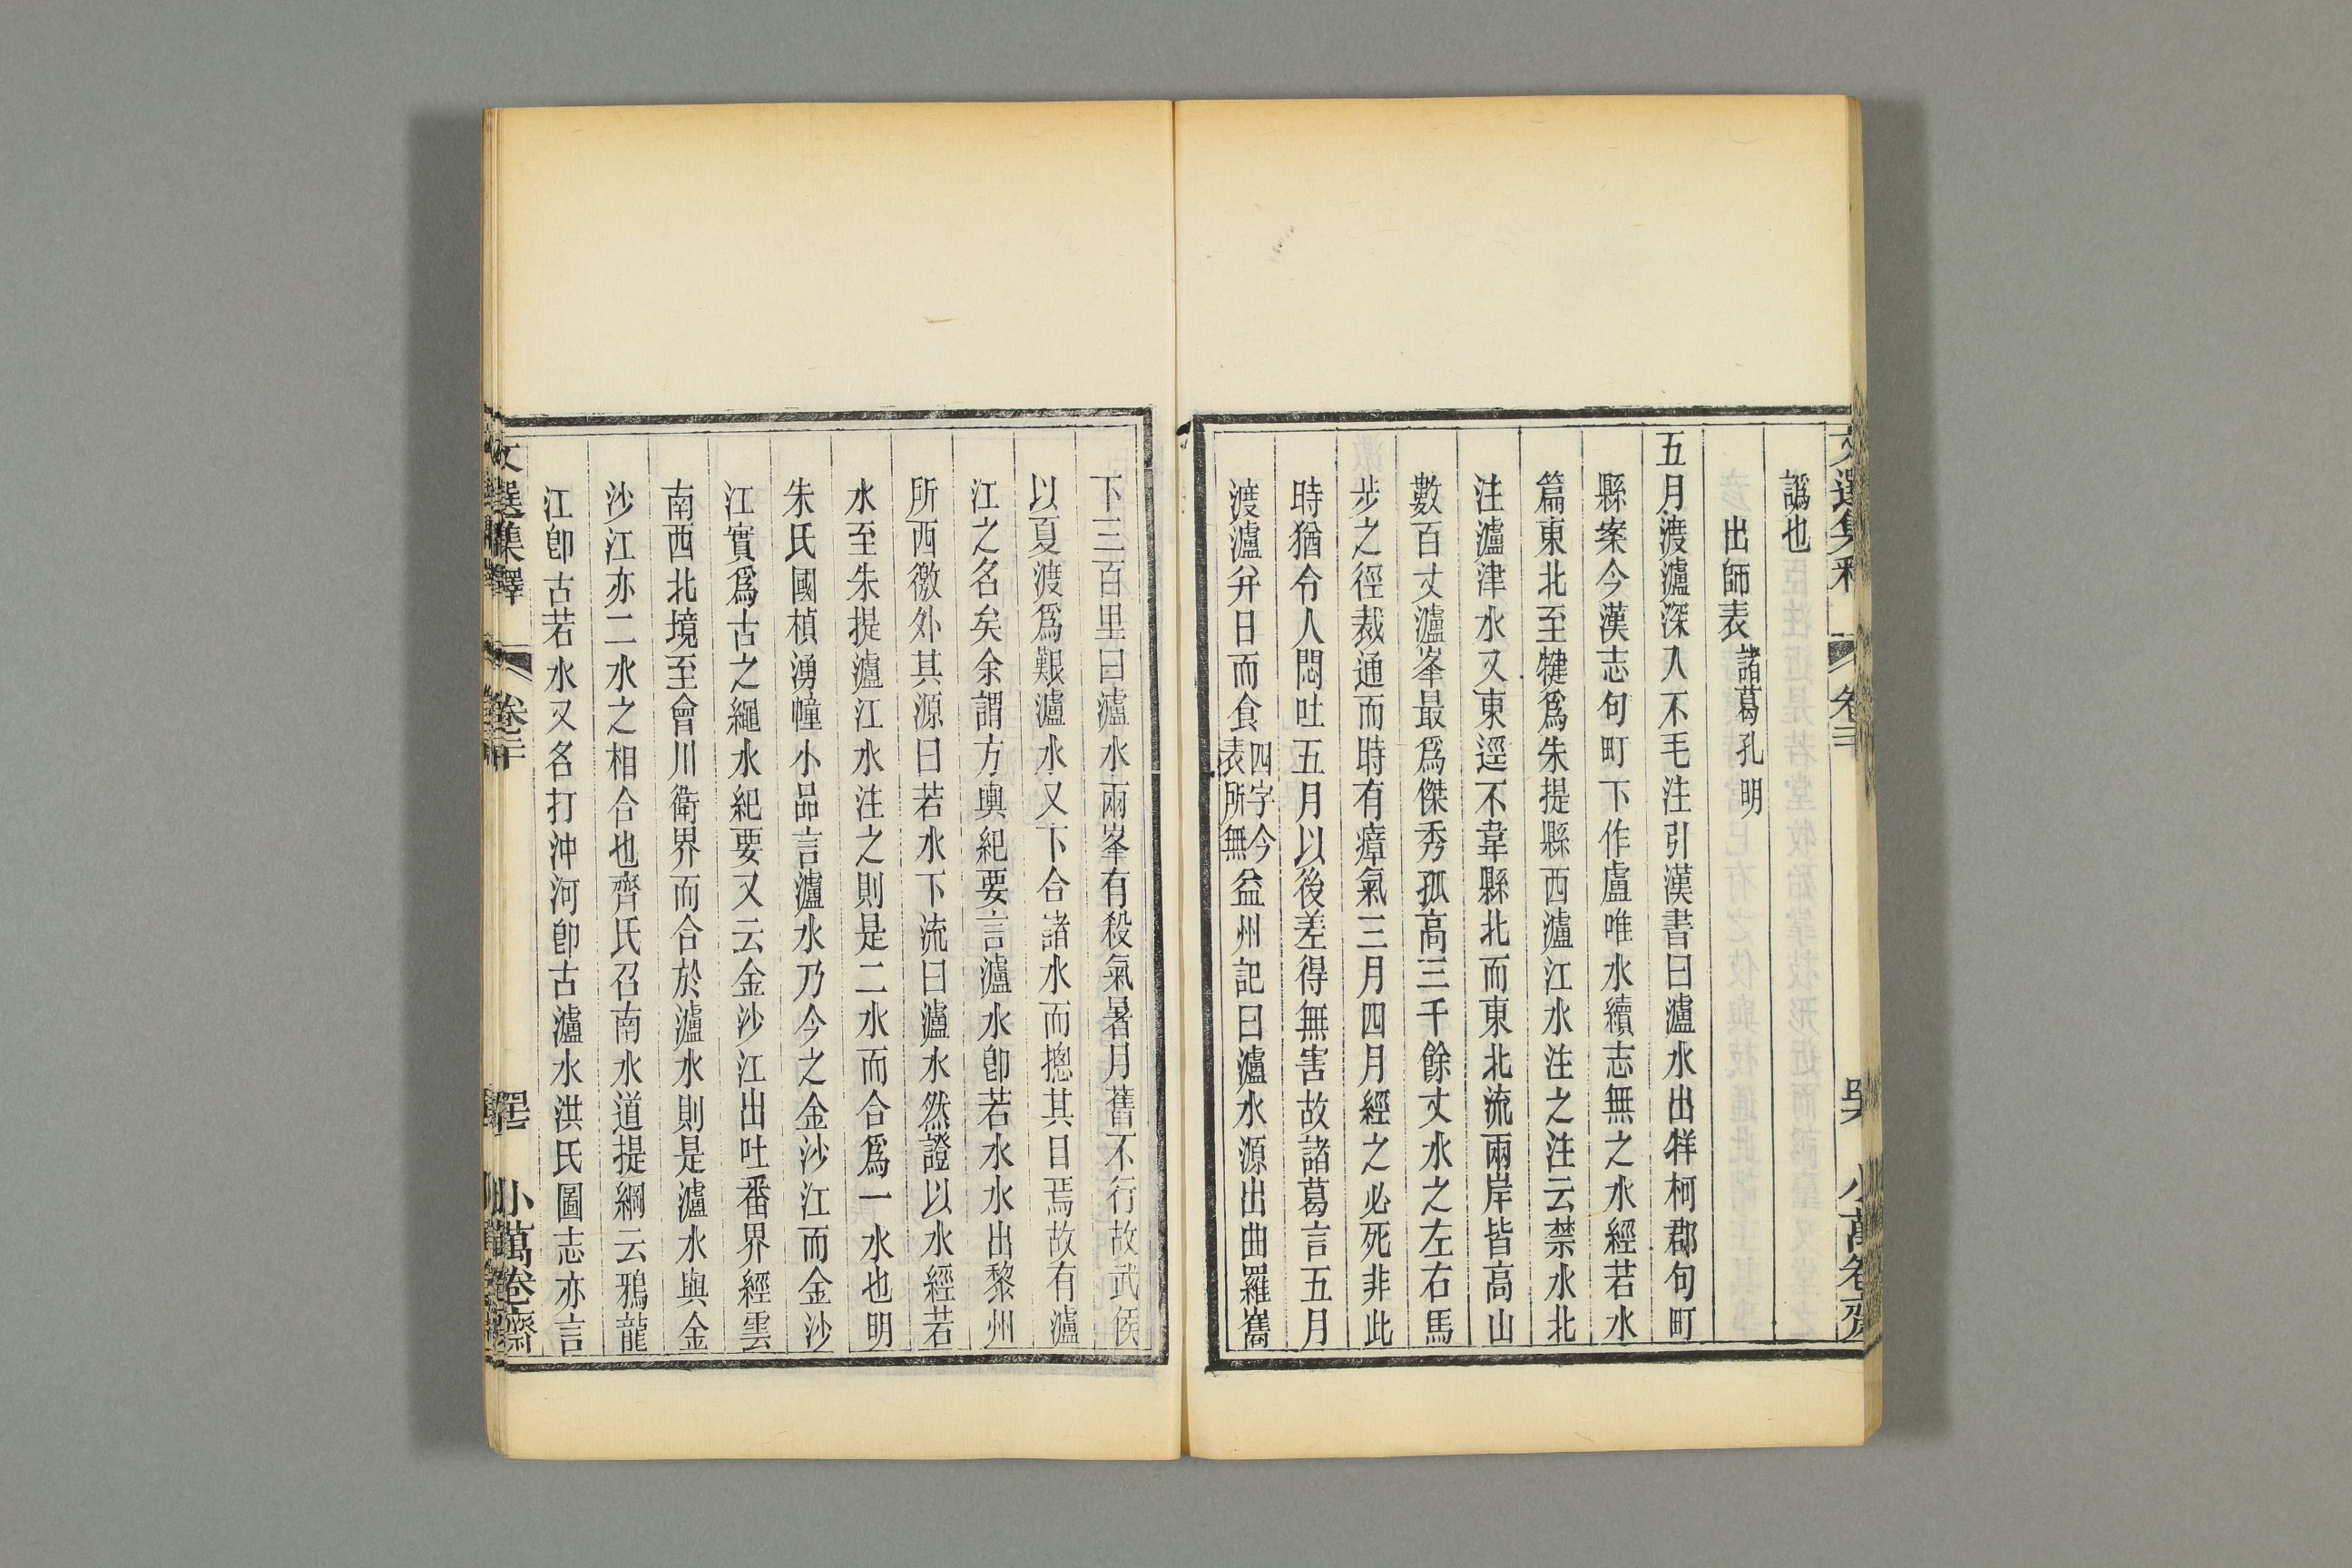 譌也
出師表諸葛孔明
五月渡瀘深入不毛注引漢書曰瀘水出牂柯郡句町
縣案今漢志句町下作盧唯水續志無之水經若水
篇東北至犍爲朱提縣西瀘江水注之注云禁水北
注瀘津水又東逕不韋縣北而東北流兩岸皆高山
數百丈瀘峯最爲傑秀孤高三千餘丈水之左右馬
步之徑裁通而時有瘴氣三月四月經之必死非此
時猶令人悶吐五月以後差得無害故諸葛言五月
渡瀘弁日而食四字今表所無益州記曰瀘水源出曲羅巂
下三百里曰瀘水兩峯有殺氣暑月舊不行故武侯
以夏渡爲艱瀘水又下合諸水而摠其目焉故有瀘
江之名矣余謂方輿紀要言瀘水卽若水水出黎州
所西徼外其源曰若水下流曰瀘水然證以水經若
水至朱提瀘江水注之則是二水而合爲一水也明
朱氏國楨湧幢小品言瀘水乃今之金沙江而金沙
江實爲古之繩水紀要又云金沙江出吐番界經雲
南西北境至會川衛界而合於瀘水則是瀘水與金
沙江亦二水之相合也齊氏召南水道提綱云鴉龍
江卽古若水又名打沖河卽古瀘水洪氏圖志亦言
文選集釋
小萬卷齋